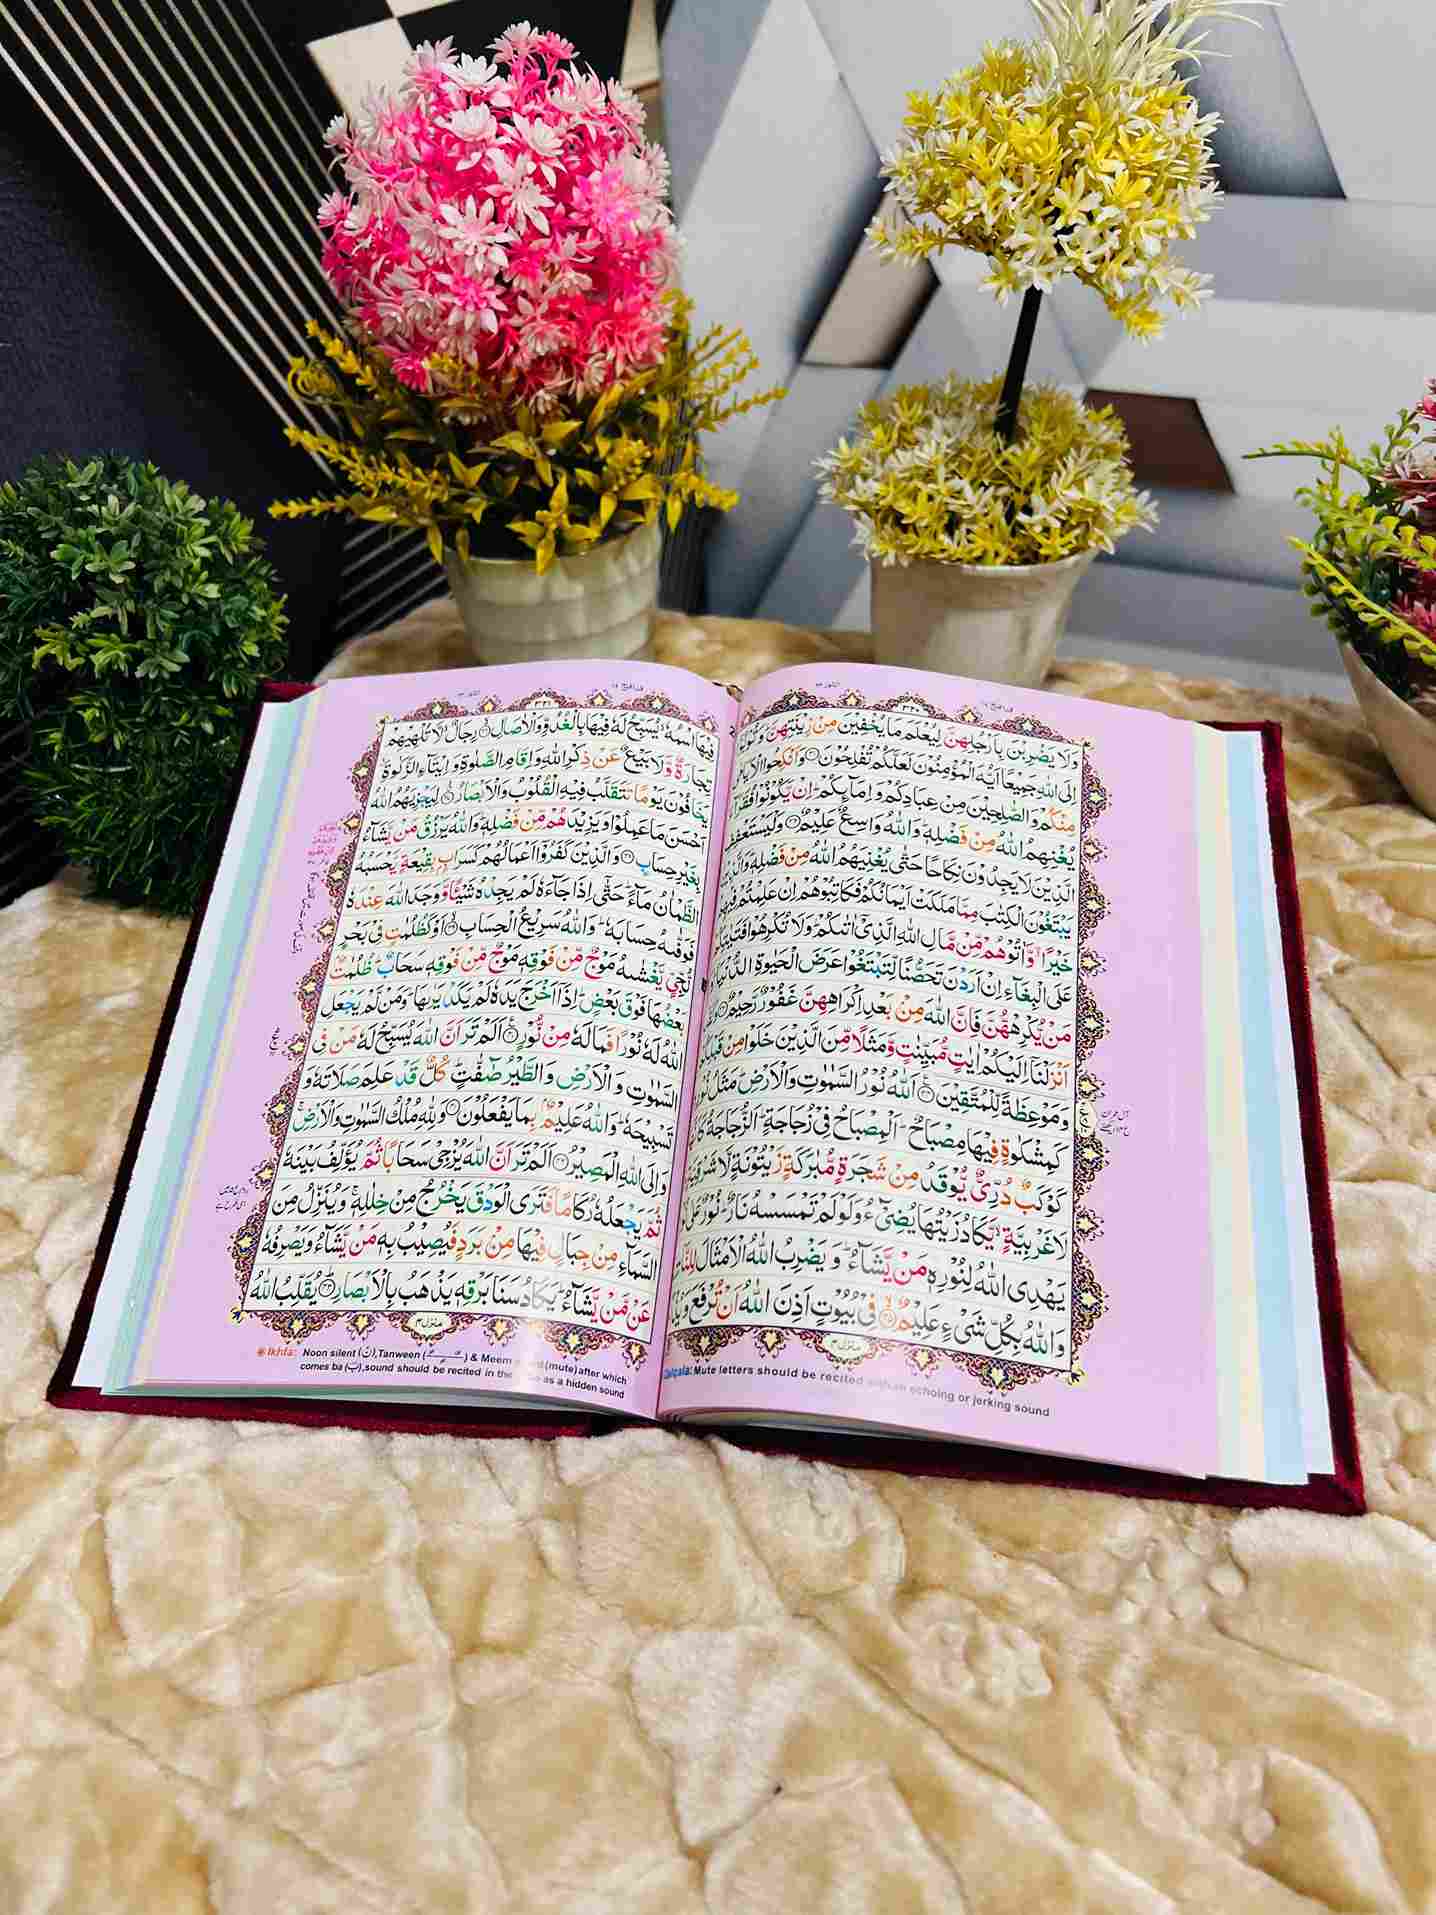 قد افلح ١٨
النور ٢٤
وَلَا يَضْرِبْنَ بِاَرْجُلِهِنَّ لِيُعْلَمَ مَا يُخْفِيْنَ مِنْ زِيْنَتِهِنَّ ؕ وَتُوْبُوْۤا
اِلَى اللّٰهِ جَمِيْعًا اَيُّهَ الْمُؤْمِنُوْنَ لَعَلَّكُمْ تُفْلِحُوْنَ ۝ وَاَنْكِحُوا الْاَيَامٰى
مِنْكُمْ وَالصّٰلِحِيْنَ مِنْ عِبَادِكُمْ وَاِمَآئِكُمْ ؕ اِنْ يَّكُوْنُوْا فُقَرَآءَ
يُغْنِهِمُ اللّٰهُ مِنْ فَضْلِهٖ ؕ وَاللّٰهُ وَاسِعٌ عَلِيْمٌ ۝ وَلْيَسْتَعْفِفِ
الَّذِيْنَ لَا يَجِدُوْنَ نِكَاحًا حَتّٰى يُغْنِيَهُمُ اللّٰهُ مِنْ فَضْلِهٖ ؕ وَالَّذِيْنَ
يَبْتَغُوْنَ الْكِتٰبَ مِمَّا مَلَكَتْ اَيْمَانُكُمْ فَكَاتِبُوْهُمْ اِنْ عَلِمْتُمْ فِيْهِمْ
خَيْرًا ۖ وَّاٰتُوْهُمْ مِّنْ مَّالِ اللّٰهِ الَّذِيْۤ اٰتٰىكُمْ ؕ وَلَا تُكْرِهُوْا فَتَيٰتِكُمْ
عَلَى الْبِغَآءِ اِنْ اَرَدْنَ تَحَصُّنًا لِّتَبْتَغُوْا عَرَضَ الْحَيٰوةِ الدُّنْيَا ؕ وَ
مَنْ يُّكْرِهْهُّنَّ فَاِنَّ اللّٰهَ مِنْۢ بَعْدِ اِكْرَاهِهِنَّ غَفُوْرٌ رَّحِيْمٌ ۝ وَلَقَدْ
اَنْزَلْنَاۤ اِلَيْكُمْ اٰيٰتٍ مُّبَيِّنٰتٍ وَّمَثَلًا مِّنَ الَّذِيْنَ خَلَوْا مِنْ قَبْلِكُمْ
وَمَوْعِظَةً لِّلْمُتَّقِيْنَ ۝ اَللّٰهُ نُوْرُ السَّمٰوٰتِ وَالْاَرْضِ ؕ مَثَلُ نُوْرِهٖ
كَمِشْكٰوةٍ فِيْهَا مِصْبَاحٌ ؕ اَلْمِصْبَاحُ فِيْ زُجَاجَةٍ ؕ اَلزُّجَاجَةُ كَاَنَّهَا
كَوْكَبٌ دُرِّيٌّ يُّوْقَدُ مِنْ شَجَرَةٍ مُّبٰرَكَةٍ زَيْتُوْنَةٍ لَّا شَرْقِيَّةٍ وَّ
لَا غَرْبِيَّةٍ ۙ يَّكَادُ زَيْتُهَا يُضِيْٓءُ وَلَوْ لَمْ تَمْسَسْهُ نَارٌ ؕ نُوْرٌ عَلٰى نُوْرٍ ؕ
يَهْدِى اللّٰهُ لِنُوْرِهٖ مَنْ يَّشَآءُ ؕ وَيَضْرِبُ اللّٰهُ الْاَمْثَالَ لِلنَّاسِ ؕ
وَاللّٰهُ بِكُلِّ شَىْءٍ عَلِيْمٌ ۝ فِيْ بُيُوْتٍ اَذِنَ اللّٰهُ اَنْ تُرْفَعَ وَيُذْكَرَ
منزل ٤
Qalqala: Mute letters should be recited with an echoing or jerking sound
قد افلح ١٨
٣٢١
النور ٢٤
فِيْهَا اسْمُهٗ ۙ يُسَبِّحُ لَهٗ فِيْهَا بِالْغُدُوِّ وَالْاٰصَالِ ۝ رِجَالٌ ۙ لَّا تُلْهِيْهِمْ
تِجَارَةٌ وَّلَا بَيْعٌ عَنْ ذِكْرِ اللّٰهِ وَاِقَامِ الصَّلٰوةِ وَاِيْتَآءِ الزَّكٰوةِ ۙ
يَخَافُوْنَ يَوْمًا تَتَقَلَّبُ فِيْهِ الْقُلُوْبُ وَالْاَبْصَارُ ۝ لِيَجْزِيَهُمُ اللّٰهُ
اَحْسَنَ مَا عَمِلُوْا وَيَزِيْدَهُمْ مِّنْ فَضْلِهٖ ؕ وَاللّٰهُ يَرْزُقُ مَنْ يَّشَآءُ
بِغَيْرِ حِسَابٍ ۝ وَالَّذِيْنَ كَفَرُوْۤا اَعْمَالُهُمْ كَسَرَابٍۭ بِقِيْعَةٍ يَّحْسَبُهُ
الظَّمْاٰنُ مَآءً ؕ حَتّٰۤى اِذَا جَآءَهٗ لَمْ يَجِدْهُ شَيْئًا وَّوَجَدَ اللّٰهَ عِنْدَهٗ
فَوَفّٰىهُ حِسَابَهٗ ؕ وَاللّٰهُ سَرِيْعُ الْحِسَابِ ۝ اَوْ كَظُلُمٰتٍ فِيْ بَحْرٍ
لُّجِّيٍّ يَّغْشٰىهُ مَوْجٌ مِّنْ فَوْقِهٖ مَوْجٌ مِّنْ فَوْقِهٖ سَحَابٌ ؕ ظُلُمٰتٌۢ
بَعْضُهَا فَوْقَ بَعْضٍ ؕ اِذَاۤ اَخْرَجَ يَدَهٗ لَمْ يَكَدْ يَرٰىهَا ؕ وَمَنْ لَّمْ يَجْعَلِ
اللّٰهُ لَهٗ نُوْرًا فَمَا لَهٗ مِنْ نُّوْرٍ ۝ اَلَمْ تَرَ اَنَّ اللّٰهَ يُسَبِّحُ لَهٗ مَنْ فِى
السَّمٰوٰتِ وَالْاَرْضِ وَالطَّيْرُ صٰٓفّٰتٍ ؕ كُلٌّ قَدْ عَلِمَ صَلَاتَهٗ وَ
تَسْبِيْحَهٗ ؕ وَاللّٰهُ عَلِيْمٌۢ بِمَا يَفْعَلُوْنَ ۝ وَلِلّٰهِ مُلْكُ السَّمٰوٰتِ وَالْاَرْضِ ۚ
وَاِلَى اللّٰهِ الْمَصِيْرُ ۝ اَلَمْ تَرَ اَنَّ اللّٰهَ يُزْجِيْ سَحَابًا ثُمَّ يُؤَلِّفُ بَيْنَهٗ
ثُمَّ يَجْعَلُهٗ رُكَامًا فَتَرَى الْوَدْقَ يَخْرُجُ مِنْ خِلٰلِهٖ ۚ وَيُنَزِّلُ مِنَ
السَّمَآءِ مِنْ جِبَالٍ فِيْهَا مِنْۢ بَرَدٍ فَيُصِيْبُ بِهٖ مَنْ يَّشَآءُ وَيَصْرِفُهٗ
عَنْ مَّنْ يَّشَآءُ ؕ يَكَادُ سَنَا بَرْقِهٖ يَذْهَبُ بِالْاَبْصَارِ ۝ يُقَلِّبُ اللّٰهُ
منزل ٤
Ikhfa: Noon silent (ن), Tanween & Meem (mute) after which
comes ba (ب), sound should be recited in the as a hidden sound